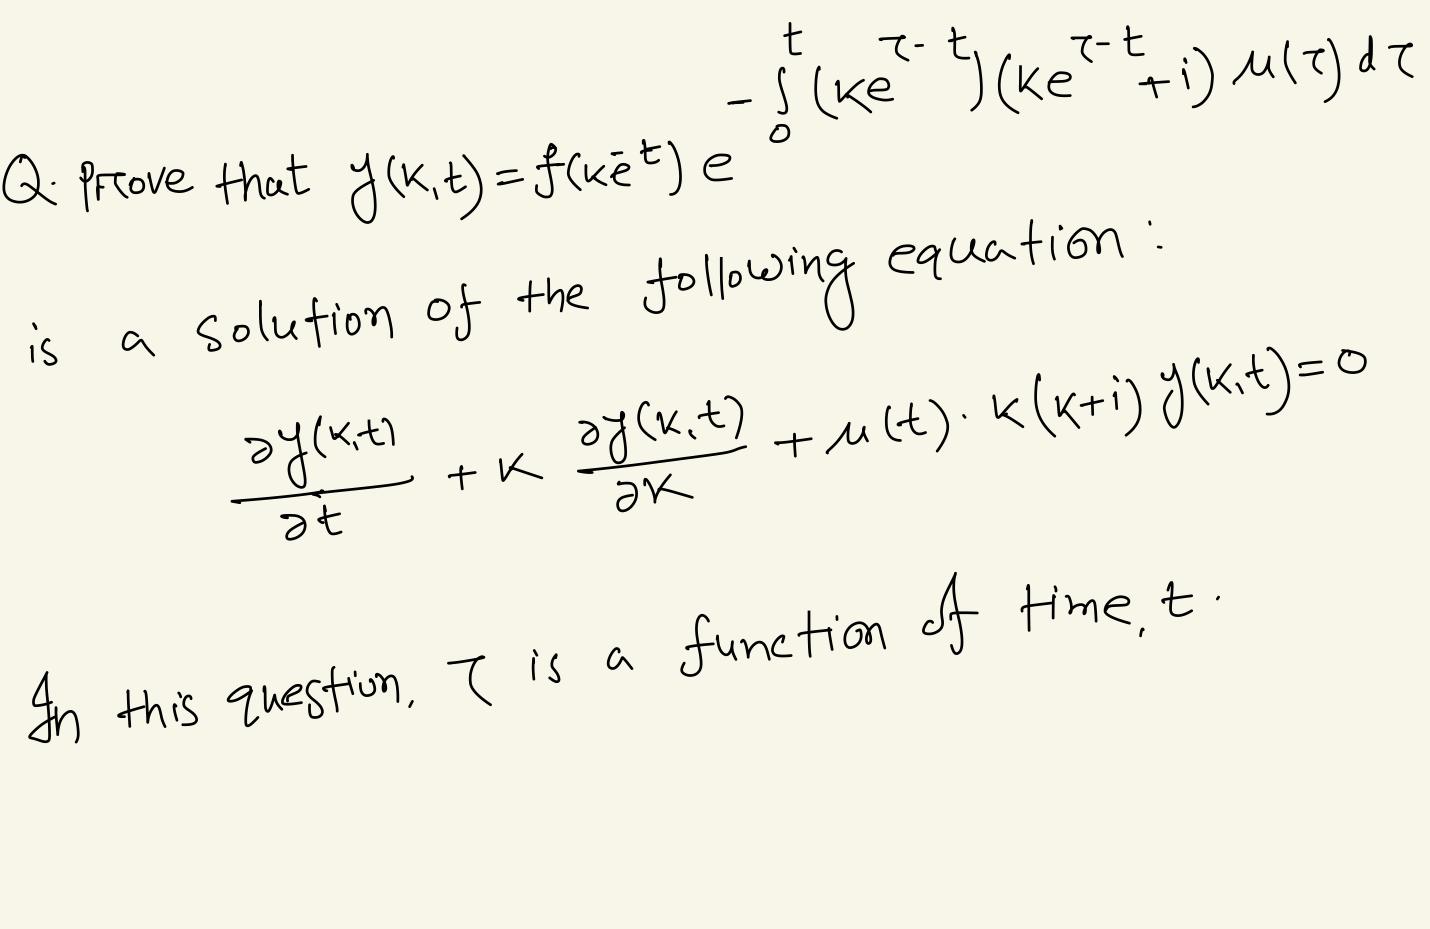 Q. Prove that y(k,t) = f(ke^{-t}) e^{-∫_0^t (ke^{τ-t})(ke^{τ-t}+i) μ(τ) dτ}
is a solution of the following equation :
∂y(k,t)/∂t + k ∂y(k,t)/∂k + μ(t). k(k+i) y(k,t) = 0
In this question, τ is a function of time, t.